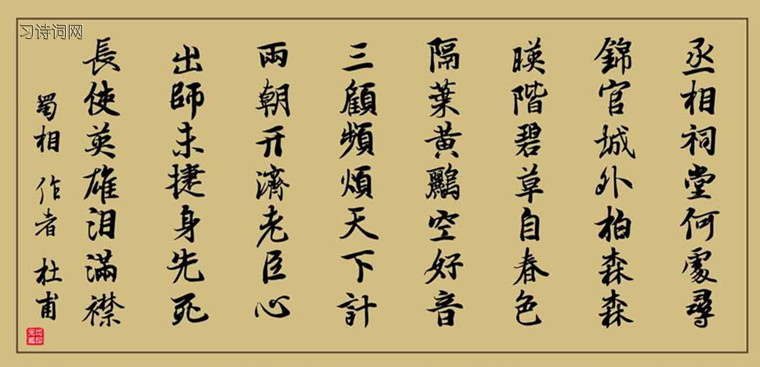 丞相祠堂何處尋
錦官城外柏森森
暎階碧草自春色
隔葉黃鸝空好音
三顧頻煩天下計
兩朝开濟老臣心
出師未捷身先死
長使英雄泪滿襟
蜀相 作者 杜甫
习诗词网